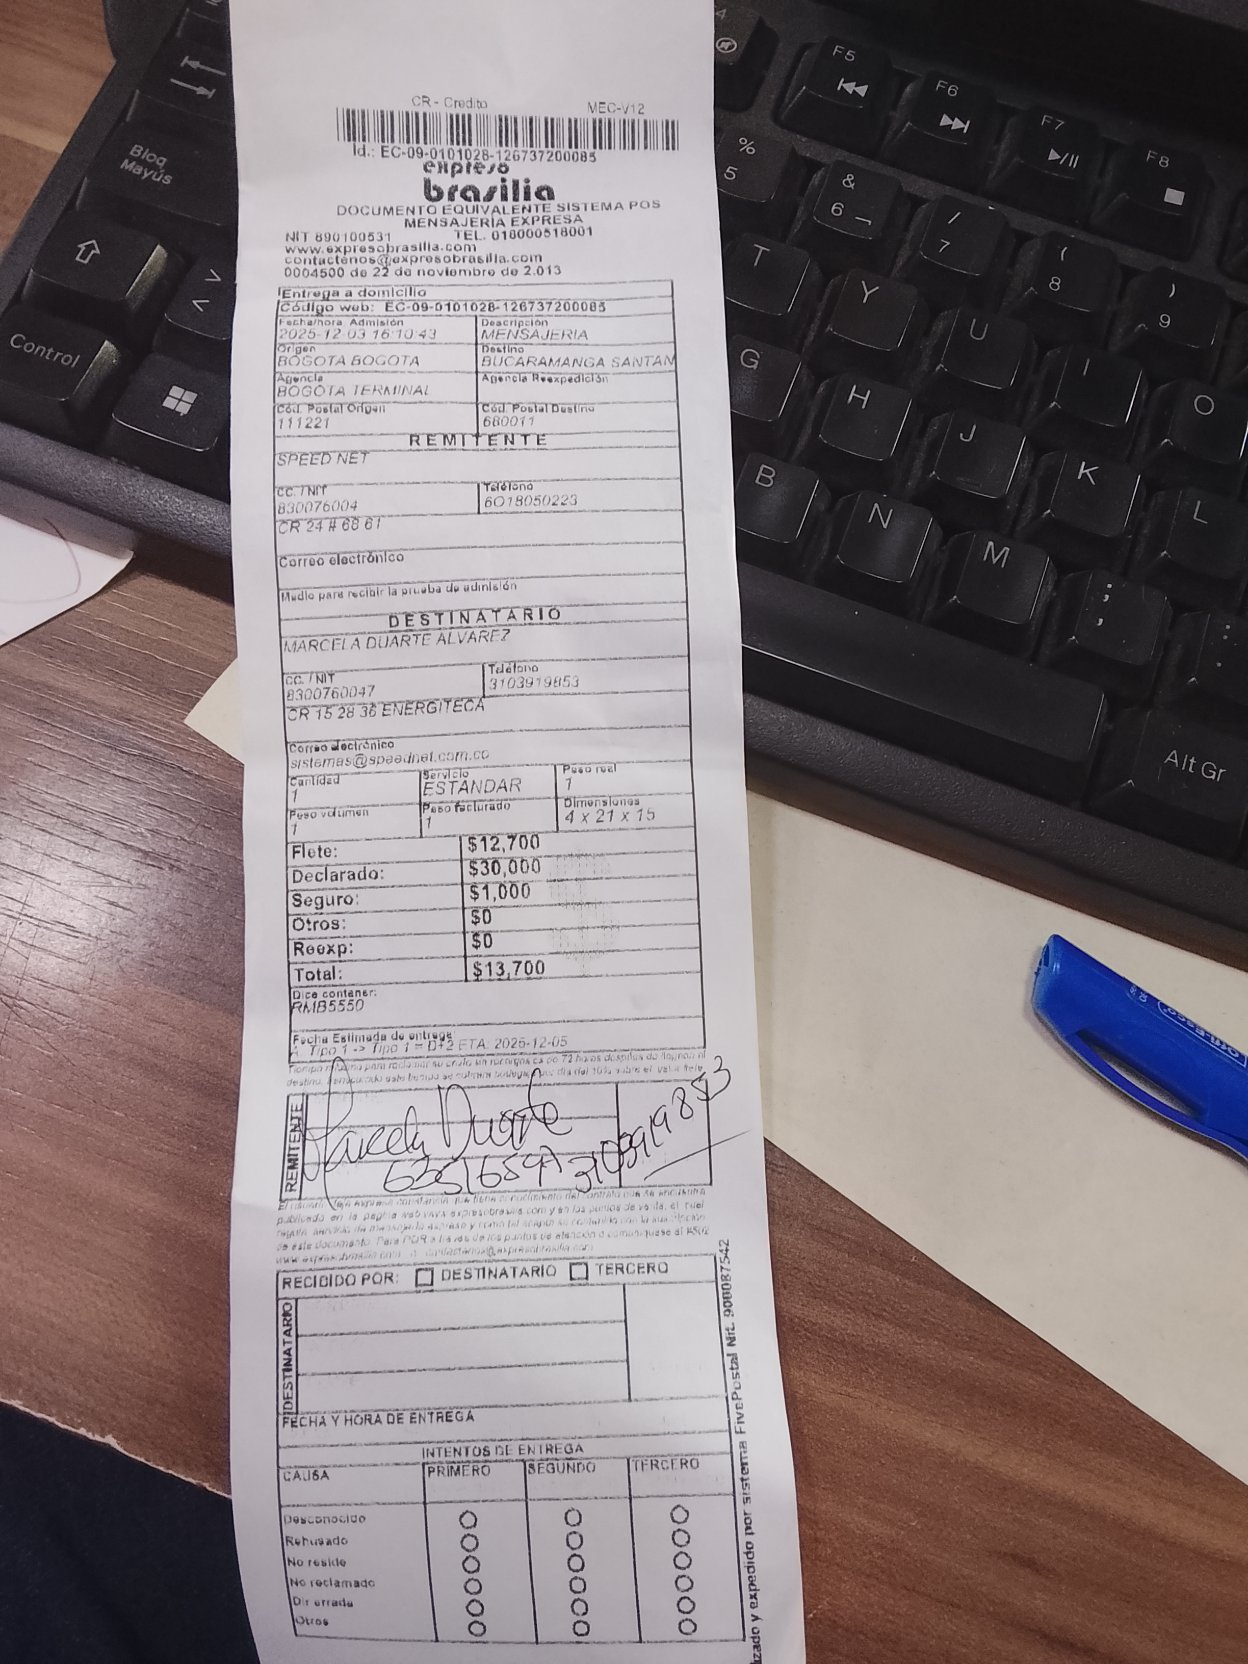 CR - Credito MEC-V12
Id.: EC-09-0101028-126737200085
expreso
brasilia
DOCUMENTO EQUIVALENTE SISTEMA POS
MENSAJERIA EXPRESA
NIT 890100531 TEL. 018000518001
www.expresobrasilia.com
contactenos@expresobrasilia.com
0004500 de 22 de noviembre de 2.013
Entrega a domicilio
Código web: EC-09-0101028-126737200085
Fecha/hora Admisión Descripción
2025-12-03 16:10:43 MENSAJERIA
Origen Destino
BOGOTA BOGOTA BUCARAMANGA SANTAN
Agencia Agencia Reexpedición
BOGOTA TERMINAL
Cód. Postal Origen Cód. Postal Destino
111221 680011
REMITENTE
SPEED NET
CC. / NIT Teléfono
830076004 6018050223
CR 24 # 68 61
Correo electrónico
Medio para recibir la prueba de admisión
DESTINATARIO
MARCELA DUARTE ALVAREZ
CC. / NIT Teléfono
8300760047 3103919853
CR 15 28 36 ENERGITECA
Correo electrónico
sistemas@speednet.com.co
Cantidad Servicio Peso real
1 ESTANDAR 1
Peso volumen Peso facturado Dimensiones
1 1 4 x 21 x 15
Flete: $12,700
Declarado: $30,000
Seguro: $1,000
Otros: $0
Reexp: $0
Total: $13,700
Dice contener:
RMB5550
Fecha Estimada de entrega
Tipo 1 -> Tipo 1 = D+2 ETA: 2025-12-05
REMITENTE
Marcela Duarte
3103919853
publicado en la pagina web www.expresobrasilia.com y en los puntos de venta, el cual
de este documento. Para PQR a traves de los puntos de atención o comuniquese al
RECIBIDO POR: DESTINATARIO TERCERO
DESTINATARIO
FECHA Y HORA DE ENTREGA
INTENTOS DE ENTREGA
CAUSA PRIMERO SEGUNDO TERCERO
Desconocido
Rehusado
No reside
No reclamado
Dir errada
Otros
izado y expedido por sistema FivePostal Nit. 900087542
Bloq
Mayús
Control
F5
F6
F7
F8
%
5
&
6 ¬
/
7
(
8
)
9
T
Y
U
I
O
G
H
J
K
L
B
N
M
;
,
:
.
Alt Gr